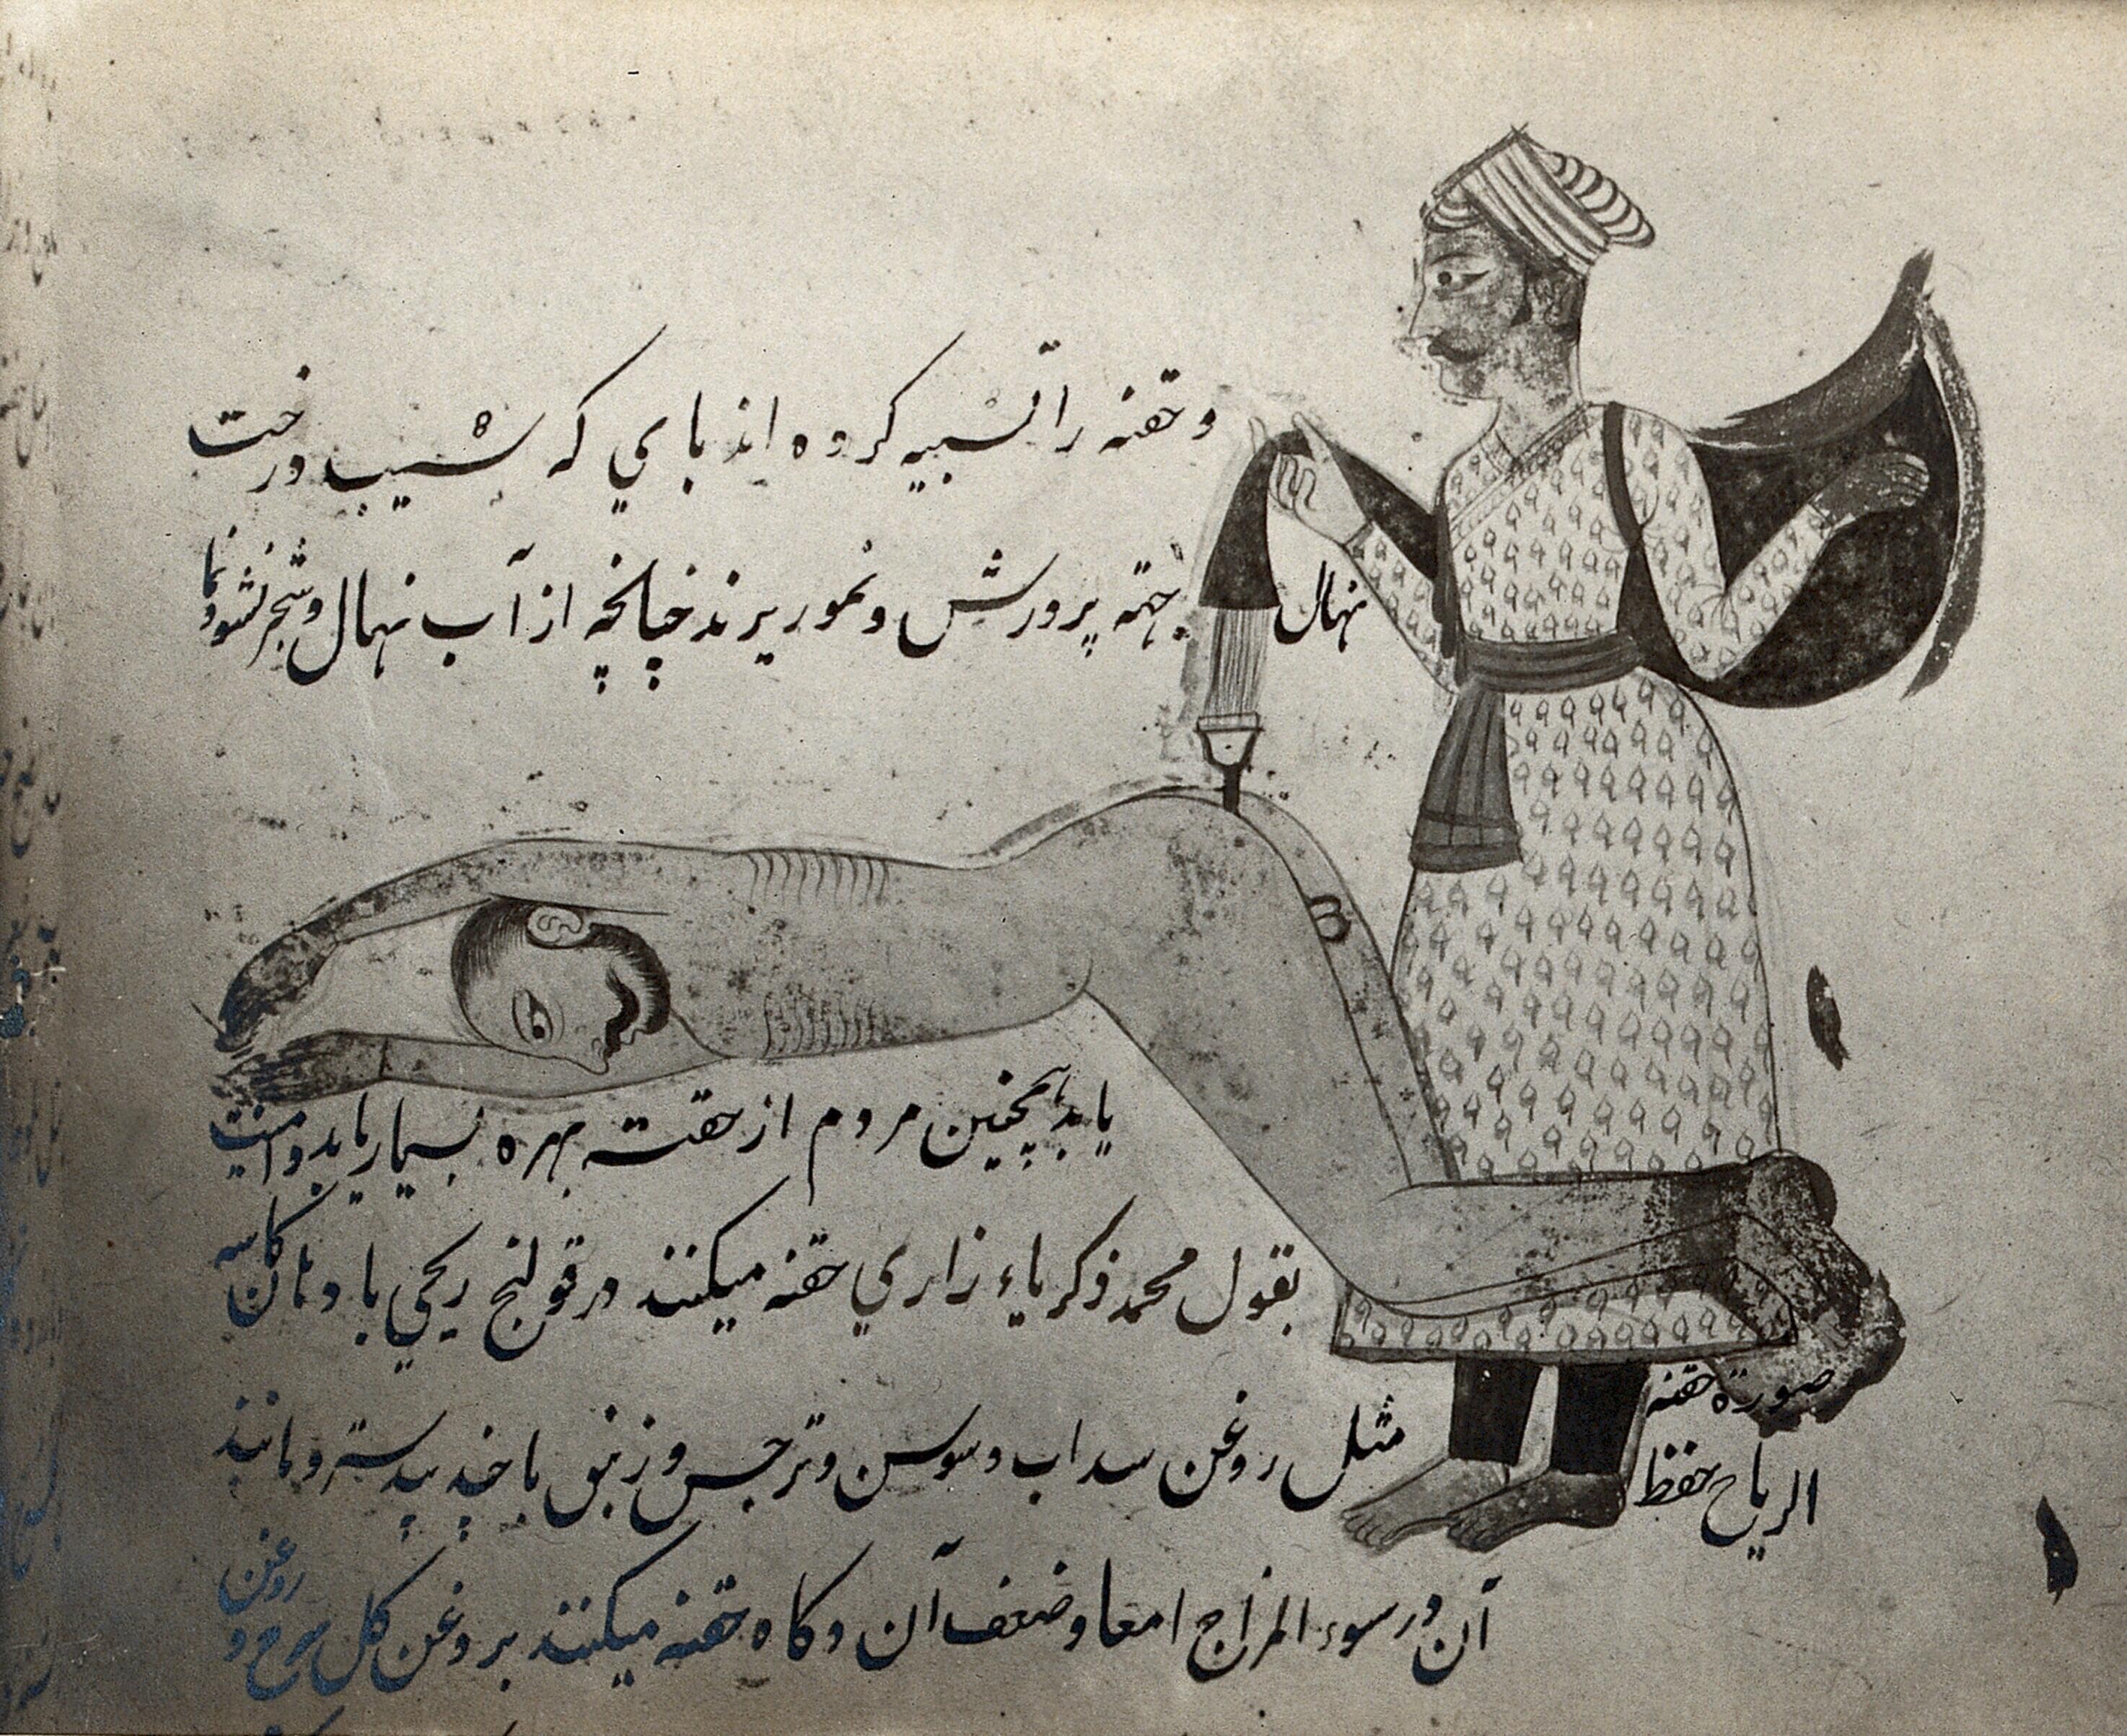 و حقنه را تشبیه کرده اند بابي که شیب درخت
نهال بجهته پرورش و نمو ریزند چنانچه از آب نهال و شجر نشو و نما
یابد همچنین مردم از حقنه بهره بسیار یابد و امنیت
بقول محمد ذکریاء زاري حقنه میکنند در قولنج ریحي با دنان کاسه
مثل روغن سداب و سوسن و نرجس و زنبق با جند بیدستر و مانند
آن در سوء المزاج امعا و ضعف آن و کاه حقنه میکنند بروغن کل سرخ و روغن
صورة حقنه
الریاح حفظ